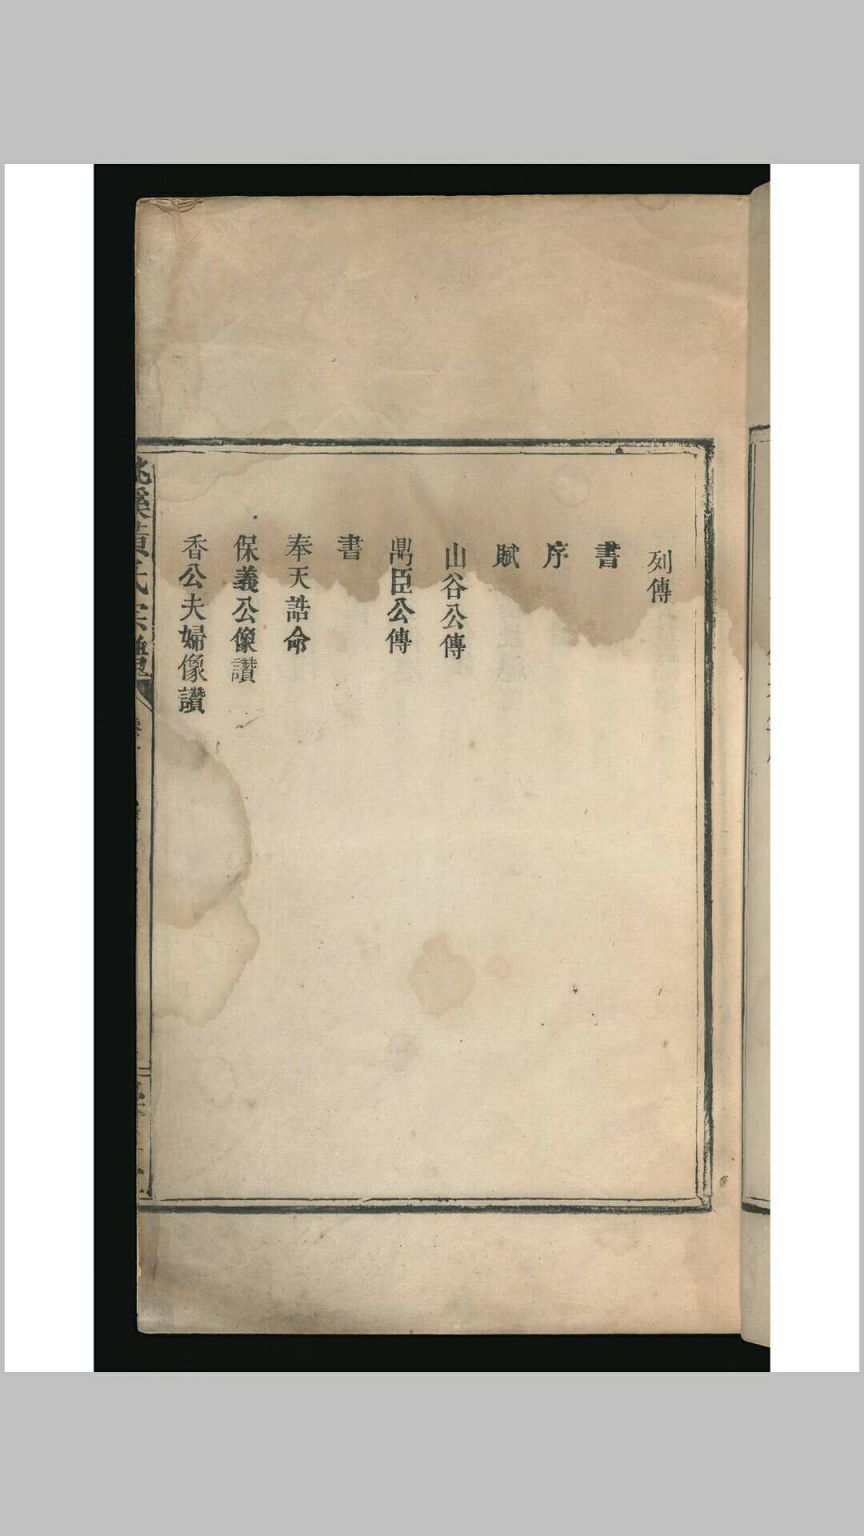 列傳
書
序
賦
山谷公傳
鼎臣公傳
書
奉天誥命
保義公像讚
香公夫婦像讚
溪黃氏宗譜